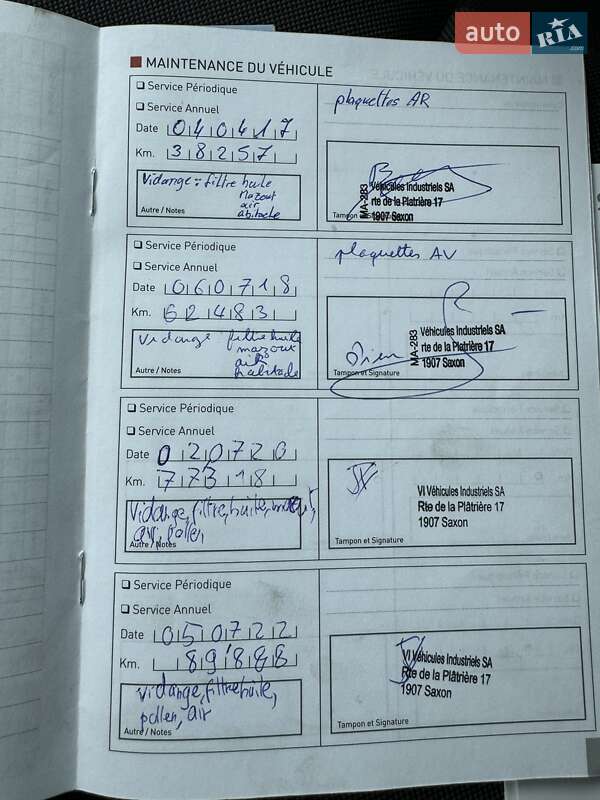 auto RIA.com
MAINTENANCE DU VÉHICULE
Service Périodique
Service Annuel
Date 040417
Km. 38257
Vidange : filtre huile
mazout
air
abitacle
Autre / Notes
plaquettes AR
MA-283
Véhicules Industriels SA
rte de la Platrière 17
1907 Saxon
Tampon et
Service Périodique
Service Annuel
Date 060718
Km. 62483
Vidange filtre huile
mazout
air
habitacle
Autre / Notes
plaquettes AV
MA-283
Véhicules Industriels SA
rte de la Platrière 17
1907 Saxon
Tampon et Signature
Service Périodique
Service Annuel
Date 020720
Km. 77318
Vidange, filtre, huile,
air, pollen,
Autre / Notes
VI Véhicules Industriels SA
Rte de la Plâtrière 17
1907 Saxon
Tampon et Signature
Service Périodique
Service Annuel
Date 050722
Km. 89888
Vidange, filtre huile,
pollen, air
Autre / Notes
VI Véhicules Industriels SA
Rte de la Plâtrière 17
1907 Saxon
Tampon et Signature